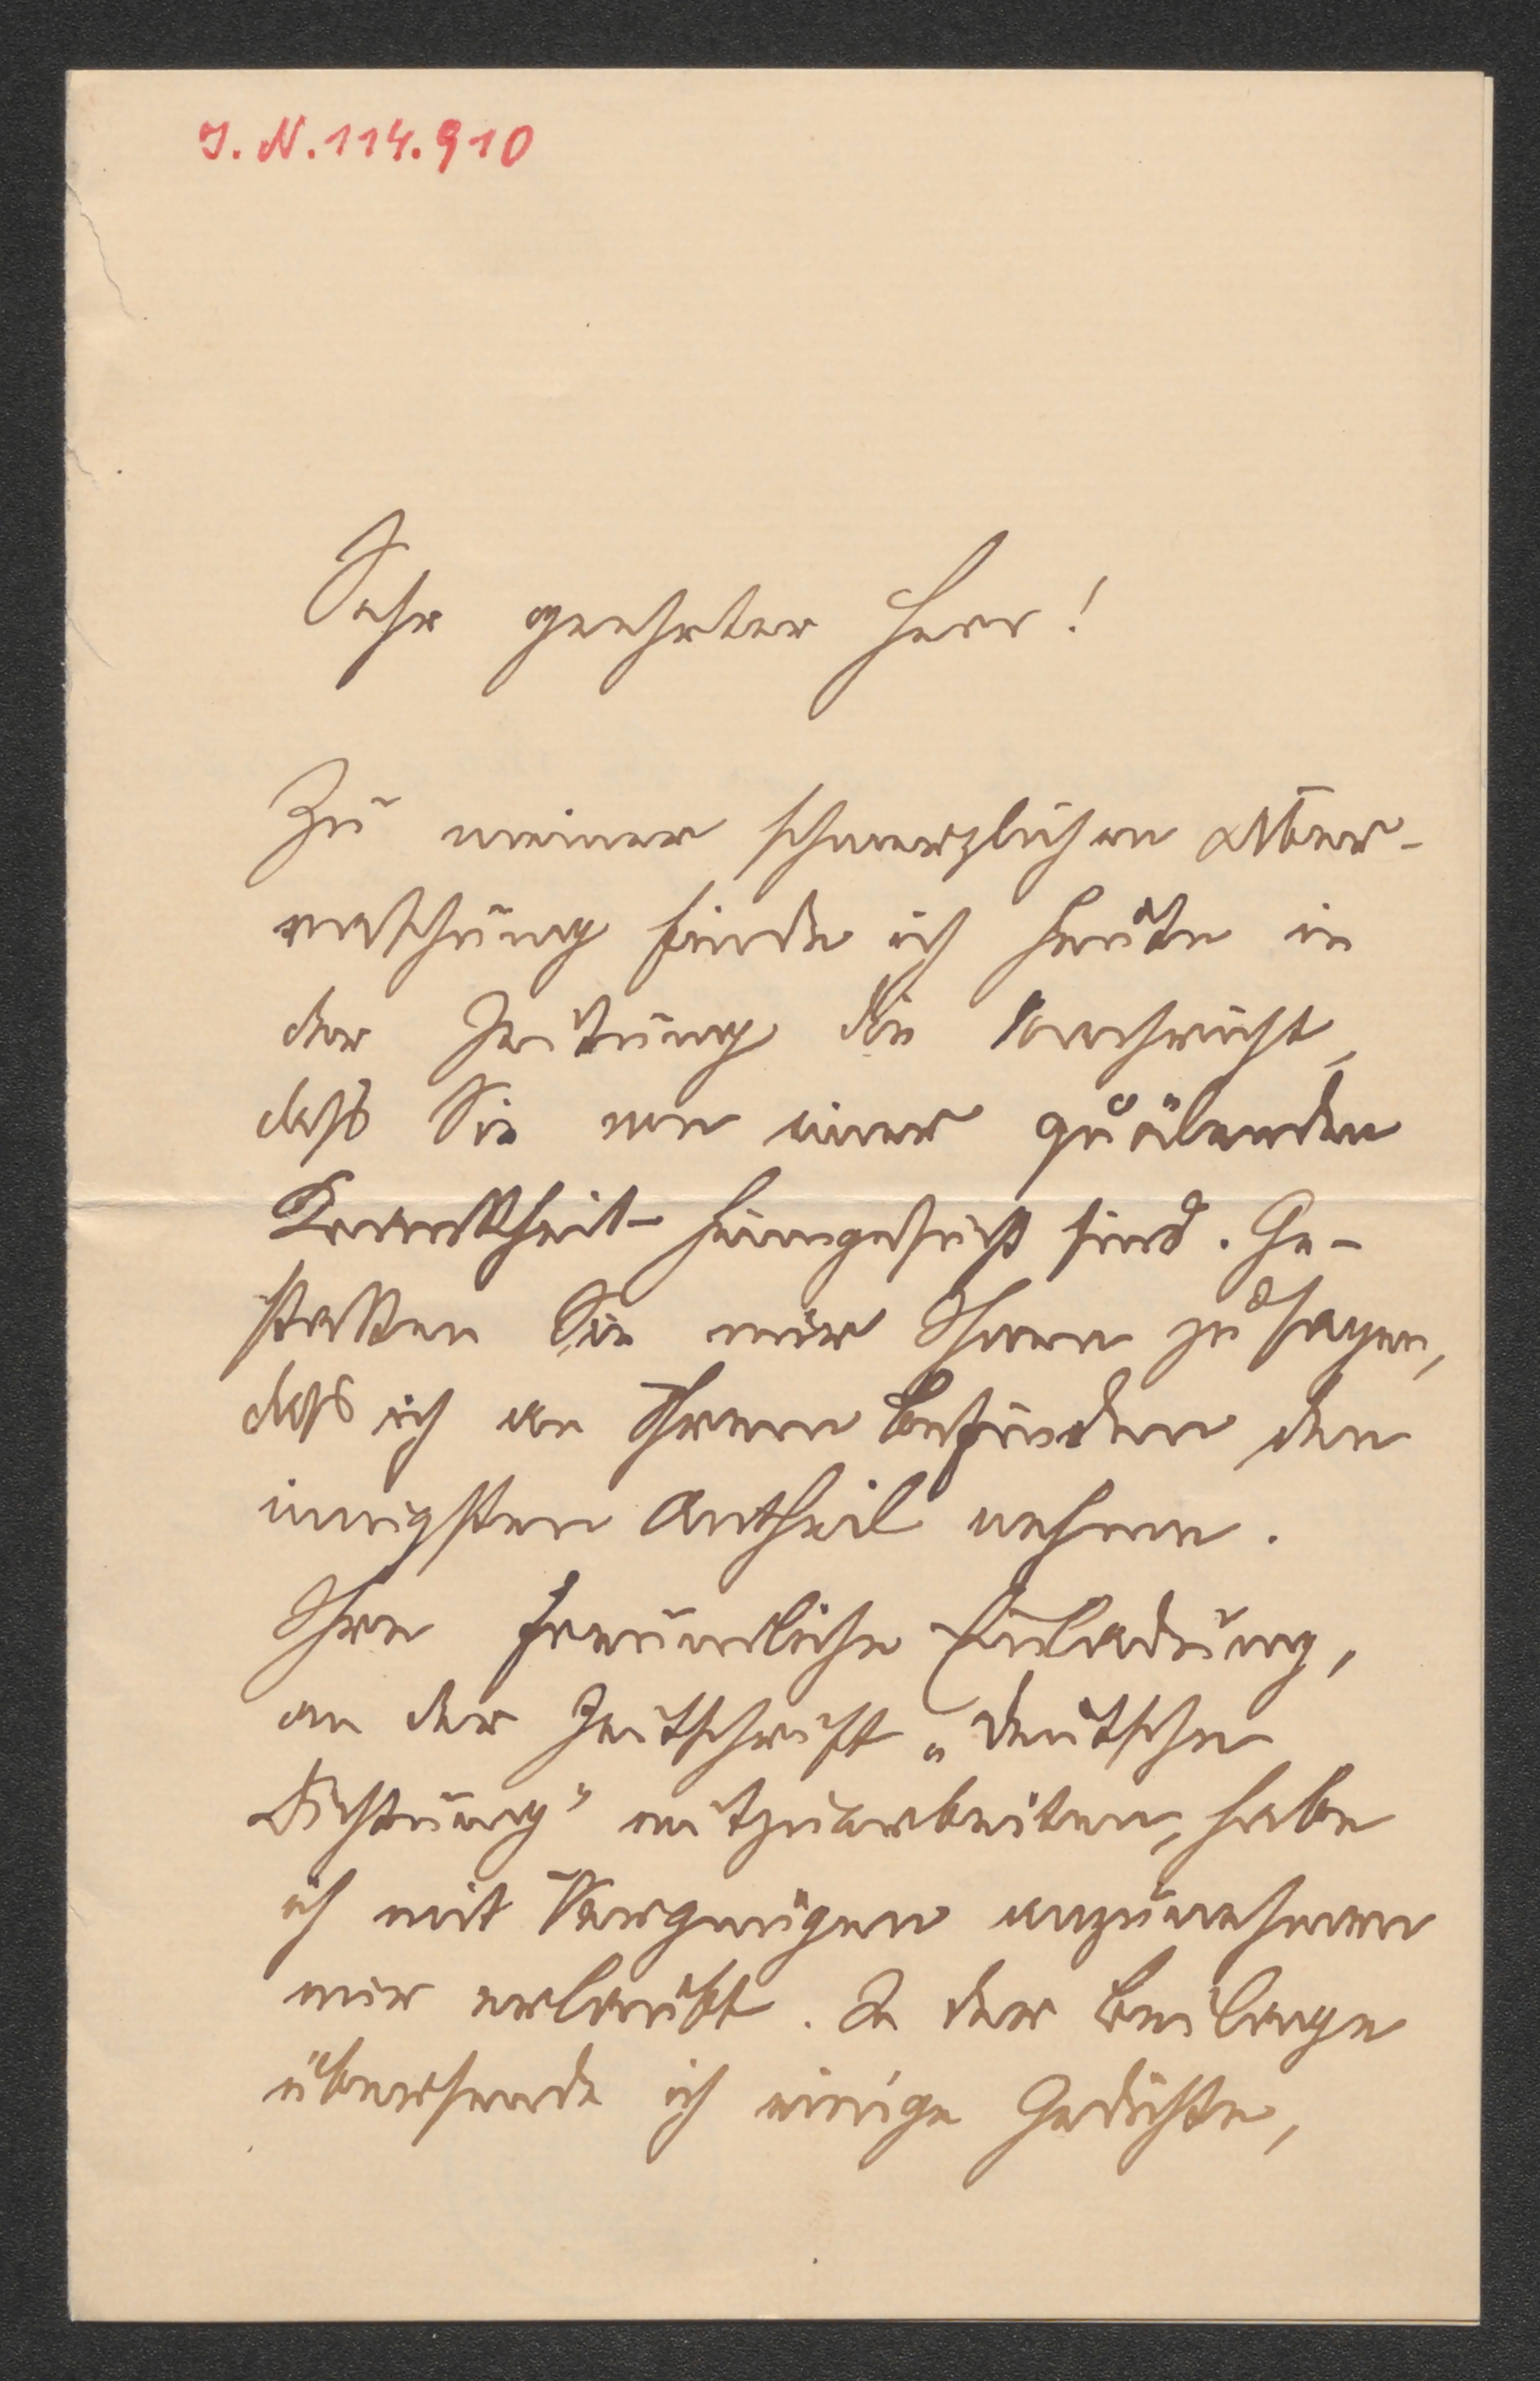 I. N. 114.910
Sehr geehrter Herr!
Zu meiner schmerzlichen Über-
raschung finde ich heute in
der Zeitung die Nachricht,
daß Sie von einer quälenden
Krankheit heimgesucht sind. Ge-
statten Sie mir Ihnen zu sagen,
daß ich an Ihrem Befinden den
innigsten Antheil nehme.
Ihre freundliche Einladung,
an der Zeitschrift „Deutsche
Dichtung" mitzuarbeiten, habe
ich mit Vergnügen anzunehmen
mir erlaubt. In der Beilage
übersende ich einige Gedichte,